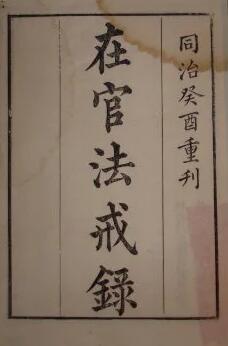 同治癸酉重刊
在官法戒錄